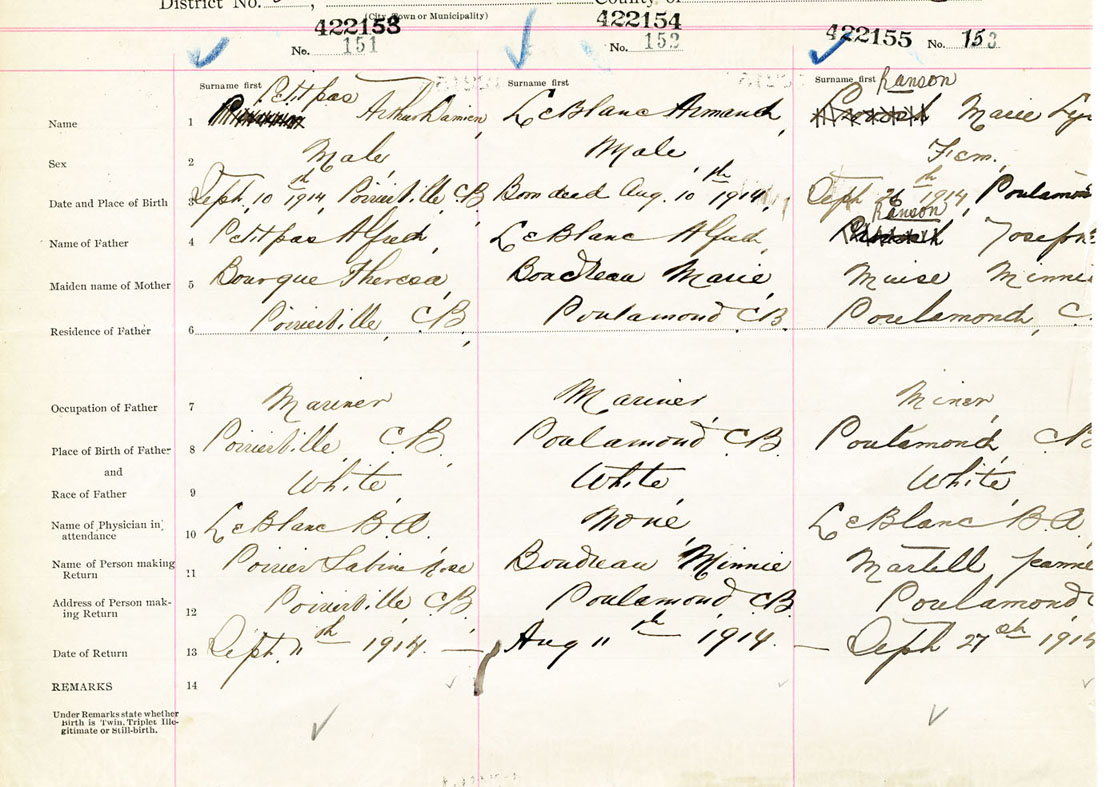 District No. , County of
(City, Town or Municipality)
422153 422154 422155
No. 151 No. 152 No. 153
Surname first Surname first Surname first Ranson
Petitpas
Name 1 Arthur Damien LeBlanc Armand Marie
Sex 2 Male Male Fem.
Date and Place of Birth 3 Sept. 10th 1914 Poirierville CB Born dead Aug. 10th 1914 Sept 26th 1914, Poulamon
Ranson
Name of Father 4 Petitpas Alfred LeBlanc Alfred Joseph
Maiden name of Mother 5 Bourque Theresa Boudreau Marie Muise Minnie
Residence of Father 6 Poirierville, CB Poulamond CB Poulamond, C.
Occupation of Father 7 Mariner Mariner Miner
Place of Birth of Father 8 Poirierville, CB Poulamond CB Poulamond CB
and
Race of Father 9 White White White
Name of Physician in attendance 10 LeBlanc B.A. None LeBlanc B A
Name of Person making Return 11 Poirier Sabine Rose Boudreau Minnie Martell Jeannie
Address of Person making Return 12 Poirierville, CB Poulamond CB Poulamond C
Date of Return 13 Sept. 11th 1914. Aug 11th 1914. Sept 27th 1914
REMARKS 14
Under Remarks state whether
Birth is Twin, Triplet Ille-
gitimate or Still-birth.